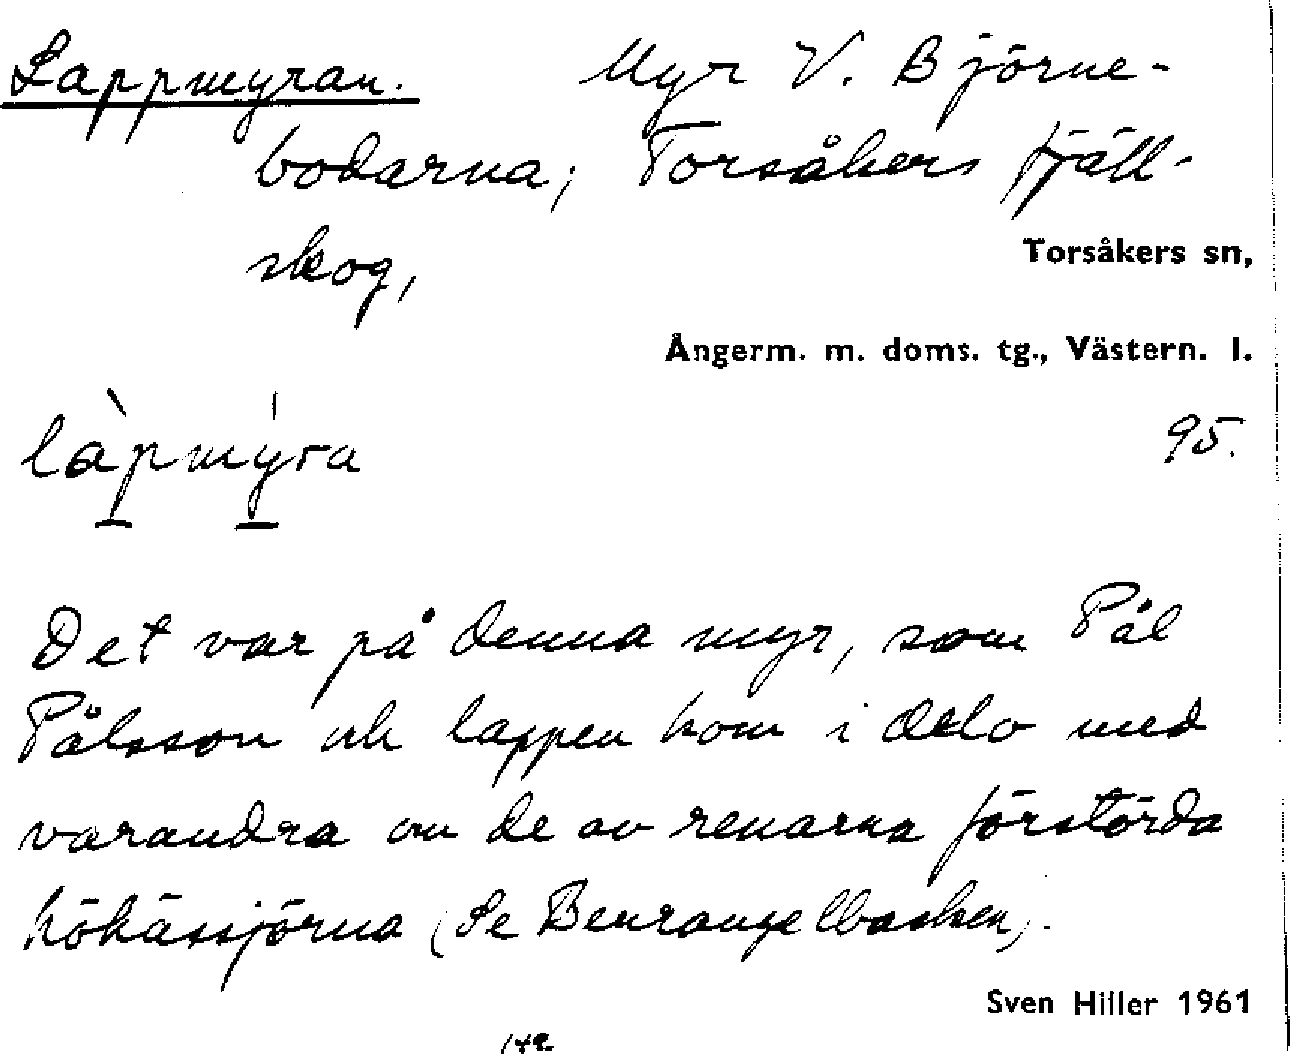 Lappmyran. Myr V. Björne-
bodarna; Torsåkers fjäll-
skog,
Torsåkers sn,
Ångerm. m. doms. tg., Västern. l.
làpmýra
95.
Det var på denna myr, som Pål
Pålsson och lappen kom i delo med
varandra om de av renarna förstörda
(Se
Sven Hiller 1961